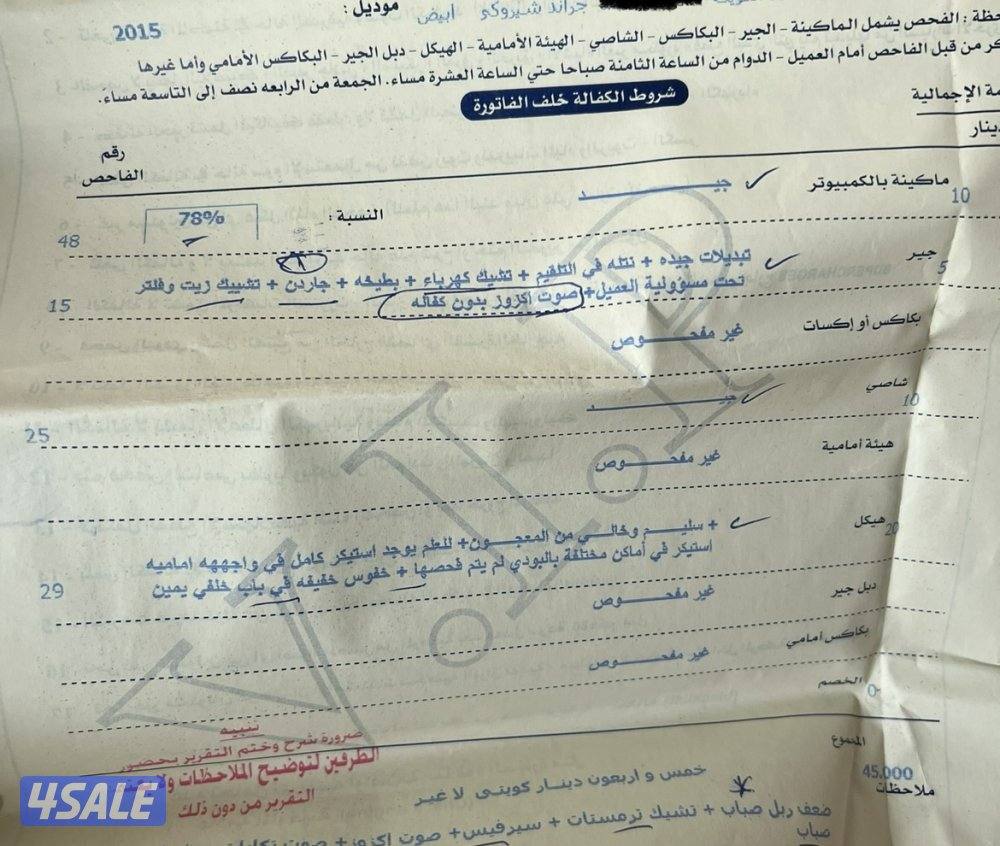 جراند شيروكي ابيض
موديل :
2015
حظة : الفحص يشمل الماكينة - الجير - البكاكس - الشاصي - الهيئة الأمامية - الهيكل - دبل الجير - البكاكس الأمامي وأما غيرها
كر من قبل الفاحص أمام العميل - الدوام من الساعة الثامنة صباحا حتي الساعة العشرة مساء. الجمعة من الرابعه نصف إلى التاسعة مساء.
شروط الكفالة خلف الفاتورة
مة الإجمالية
دينار
رقم الفاحص
ماكينة بالكمبيوتر
10
جيــــــد
النسبة :
78%
48
جير
5
تبديلات جيده + نتله في التلقيم + تشيك كهرباء + بطيخه + جاردن + تشييك زيت وفلتر
تحت مسؤولية العميل+ صوت اكزوز بدون كفاله
15
بكاكس أو إكسات
غير مفحــــوص
شاصي
10
جيــــــد
25
هيئة أمامية
غير مفحــــوص
هيكل
20
+ سليــم وخالــي من المعجــون+ للعلم يوجد استيكر كامل في واجههه اماميه
استيكر في أماكن مختلفة بالبودي لم يتم فحصها + خفوس خفيفه في باب خلفي يمين
29
دبل جير
غير مفحــــوص
بكاكس أمامي
غير مفحــــوص
الخصم
0
تنبيه
ضرورة شرح وختم التقرير بحضور
الطرفين لتوضيح الملاحظات ولا يعتمد
التقرير من دون ذلك
المجموع
45.000
خمس و اربعون دينـار كويتـى لا غير
ملاحظات
ضعف ربل صباب + تشيك ترمستات + سيرفيس+ صوت اكزوز+
صباب
4SALE